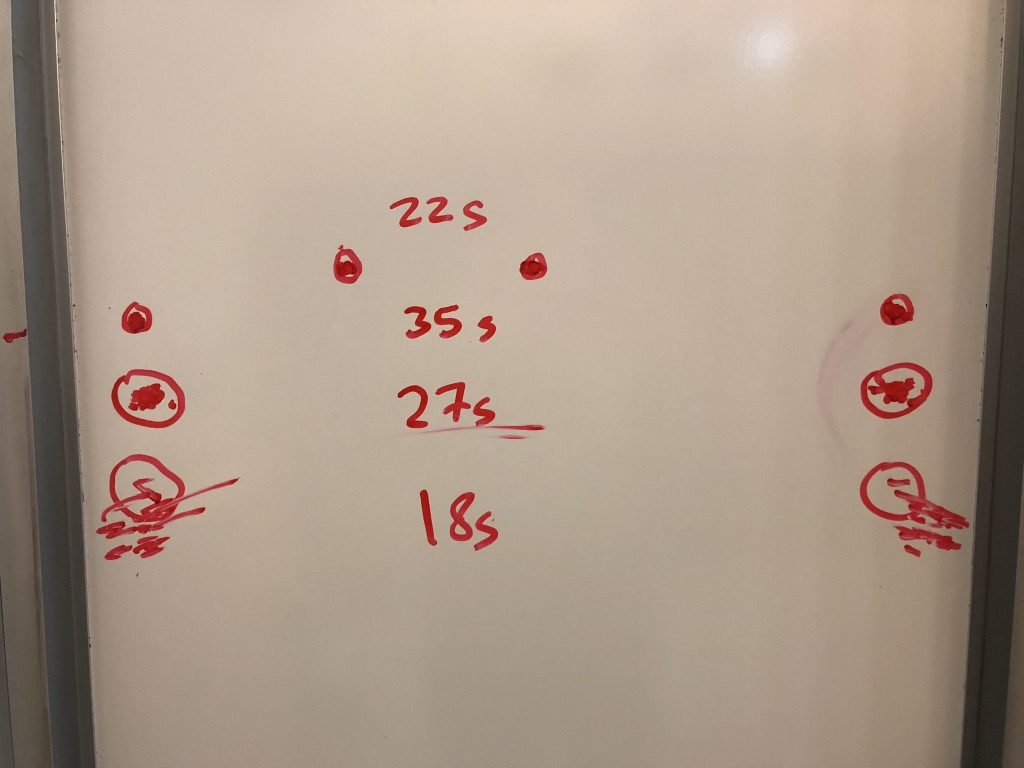 22s
35s
27s
18s